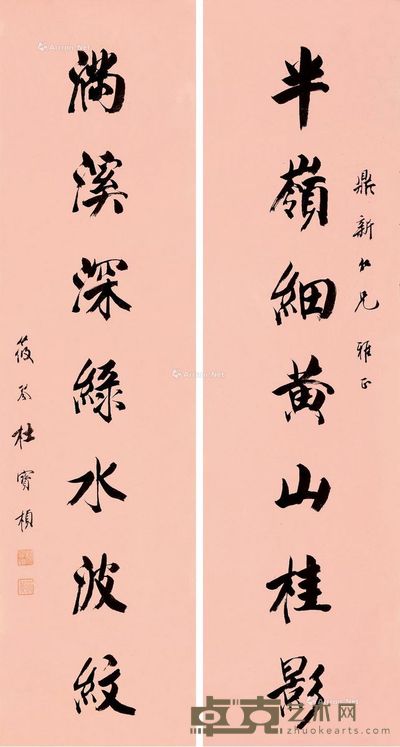 鼎新仁兄雅正
半嶺細黃山桂影
滿溪深綠水波紋
筱舫杜寶楨
卓克艺术网
zhuokearts.com
Artron.Net